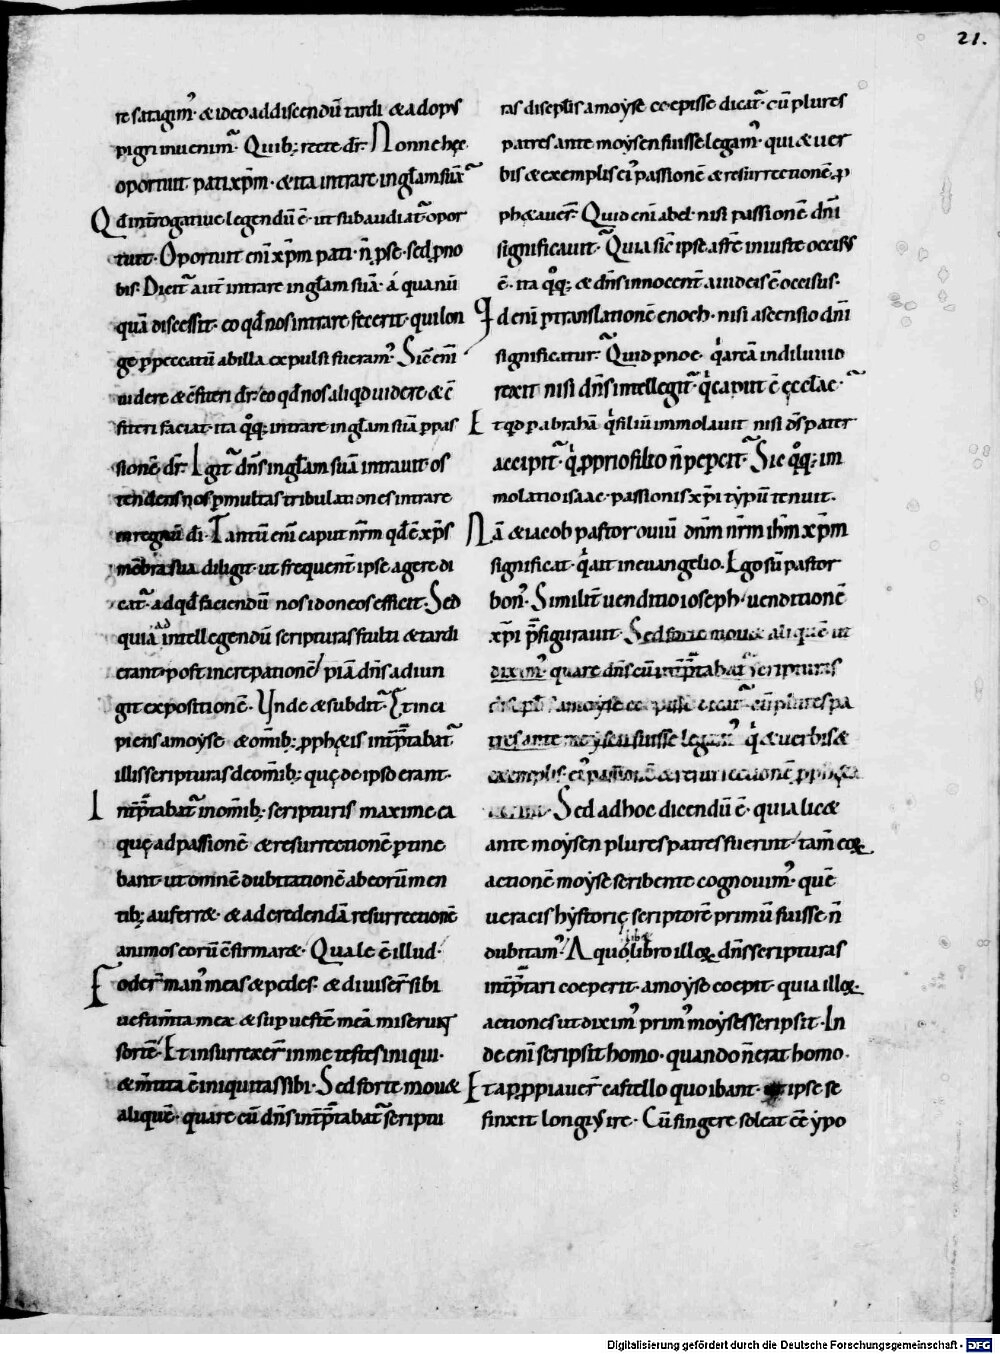 21.
re satagim᷒· & ideo ad discendū tardi & ad op̄s
pigri inuenim᷒· Quib; recte dr̄· Nonne hęc
oportuit pati xp̄m· & ita intrare in głam suā
Qd̄ int̄rogatiue legendū ē· ut subaudiat᷑ opor
tuit· Oportuit eni xp̄m pati· n̄ p se· sed p no
bis· Dicit᷑ aut̄ intrare in głam suā· á qua nū
quā discessit· eo qd̄ nos intrare fecerit· qui lon
ge p peccatū ab illa expulsi fueram᷒· Sic̄ eni
uidere & c̄fiteri dr̄· eo qd̄ nos aliqd uidere & c̄
fiteri faciat· ita qͦq; intrare in głam suā p pas
sionē dr̄· Igit᷑ dn̄s in głam suā intrauit os
tendens nos p multas tribulationes intrare
in regnū dī· Tantū eni caput nr̄m qd̄ ē xp̄s
mēbra sua diligit· ut frequent̄ ipse agere di
cat᷑· ad qd̄ faciendū nos idoneos efficit· Sed
quia ad intellegendū scripturas stulti & tardi
erant· post increpationē piā dn̄s adiun
git expositionē· Unde & subdit᷑· Et inci
piens a moẏse & om̄ib; pph&is int̄p̄tabat᷑
illis scripturas de om̄ib; quę de ipso erant·
Int̄p̄tabat᷑ in om̄ib; scripturis maxime ea
quę ad passionē & resurrectionē ptine
bant· ut omnē dubitationē ab eorū men
tib; auferr&· & ad credendā resurrectionē
animos eorū c̄firmar&· Quale ē illud·
Foder̄ man᷒ meas & pedes· & diuiser̄ sibi
uestim̄ta mea· & sup uestē meā miserunt
sortē· Et insurrexer̄ in me testes iniqui·
& m̄tita ē iniquitas sibi· Sed forte mou&
aliquē· quare eū dn̄s int̄p̄tabat᷑ scriptu
ras discipłis a moẏse coepisse dicat᷑· cū plures
patres ante moẏsen fuisse legam᷒· qui & uer
bis & exemplis ei᷒ passionē & resurrectionē p
ph&auer̄· Quid eni abel· nisi passionē dn̄i
significauit᷑· Quia sic̄ ipse a fr̄e iniuste occisus
ē· ita qͦq; & dn̄s innocent̄ a iudeis ē occisus·
Qd eni p translationē enoch· nisi ascensio dn̄i
significatur᷑· Quid p noe· qi arcā in diluuio
rexit nisi dn̄s intellegit᷑· qi caput ē ęccłae·
Et qd p abrahā qi filiū immolauit nisi ds̄ pater
accipit᷑· qi pprio filio n̄ pepcit᷑· Sic qͦq; im
molatio isaac· passionis xp̄i tẏpū tenuit·
Nā & iacob pastor ouiū dn̄m nr̄m ih̄m xp̄m
significat· qi ait in euangelio· Ego sū pastor
bon᷒· Similit̄ uenditio ioseph· uenditionē
xp̄i p̄figurauit· Sed forte mou& aliquē ut
dixim᷒· quare dn̄s cū int̄p̄tabat᷑ scripturas
discipłis a moẏse coepisse dicat᷑· cū plures pa
tres ante moẏsen fuisse legam᷒· qi & uerbis &
exemplis ei᷒ passionē & resurrectionē pph&a
uerunt· Sed ad hoc dicendū ē· quia lic&
ante moẏsen plures patres fuerint· tam̄ eoꝝ
actionē moẏse scribente cognouim᷒· quē
ueracis hẏstorię scriptorē primū fuisse n̄
dubitam᷒· A quo libro illoꝝ dn̄s scripturas
int̄p̄tari coeperit· a moẏse coepit· quia illoꝝ
actiones ut dixim᷒ prim᷒ moẏses scripsit· In
de eni scripsit homo· quando n̄ erat homo·
Et appiauer̄ castello quo ibant· & ipse se
finxit longiꝰ ire· Cū fingere soleat ēē ẏpo
Digitalisierung gefördert durch die Deutsche Forschungsgemeinschaft · DFG